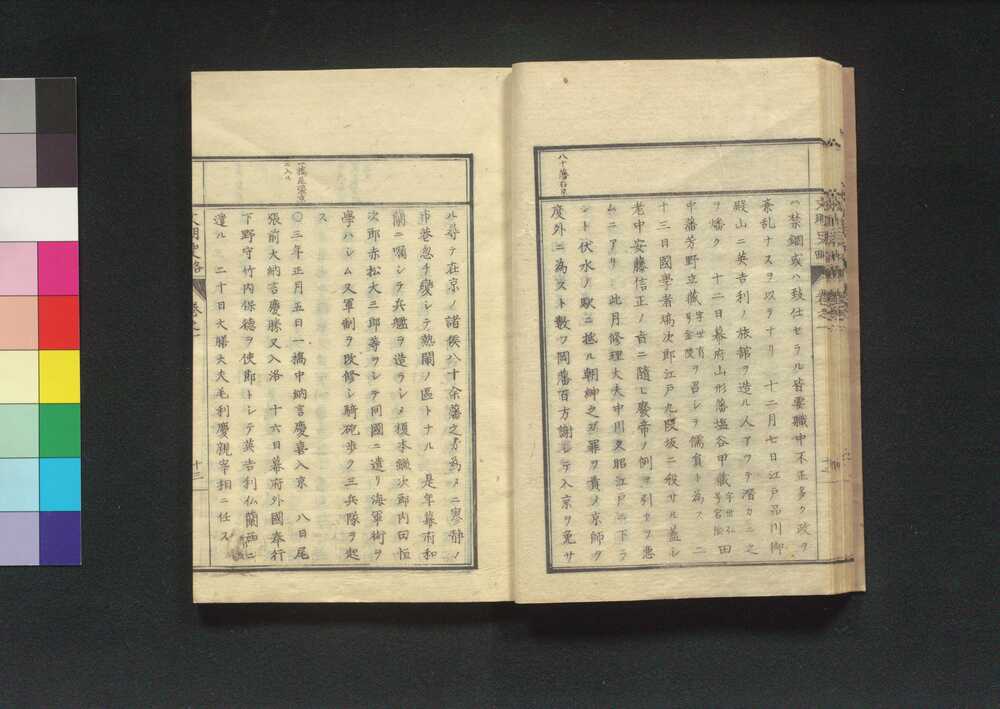 八十藩右京
ハ禁錮或ハ致仕セラル皆要職中不正多ク政ヲ
紊乱ナスヲ以テナリ 十二月七日江戸品川御
殿山ニ英吉利ノ旅館ヲ造ル人アツテ潜カニ之
ヲ燔ク 十二日幕府山形藩塩谷甲蔵字世弘号宕陰田
中藩芳野立蔵字世育号金陵ヲ召シテ儒員ト為ス 二
十三日國學者塙次郎江戸九段坂ニ殺サル蓋シ
老中安藤信正ノ旨ニ随ヒ廢帝ノ例ヲ引セヲ悪
ムニアリ 此月修理大夫中川久昭江戸ニ下ラ
ント伏水ノ駅ニ抵ル朝紳之ガ罪ヲ責メ京師ヲ
度外ニ為スト数ヲ岡藩百方謝シテ入京ヲ免サ
一橋尾張京
ニ入ル
ル尋テ在京ノ諸侯八十余藩之ガ為メニ寥静ノ
市巷忽チ変シテ熱閙ノ區トナル 是年幕府和
蘭ニ嘱シテ兵艦ヲ造ラシメ榎本鎌次郎内田恒
次郎赤松大三郎等ヲシテ同國ニ遣リ海軍術ヲ
學ハシム又軍制ヲ改修シ騎砲歩ク三兵隊ヲ起
ス
〇三年正月五日一橋中納言慶喜入京 八日尾
張前大納言慶勝又入洛 十六日幕府外國奉行
下野守竹内保徳ヲ使節トシテ英吉利仏蘭西ニ
遣ル 二十日大膳大夫毛利慶親宰相ニ任ス
文明史略 巻之一 十三